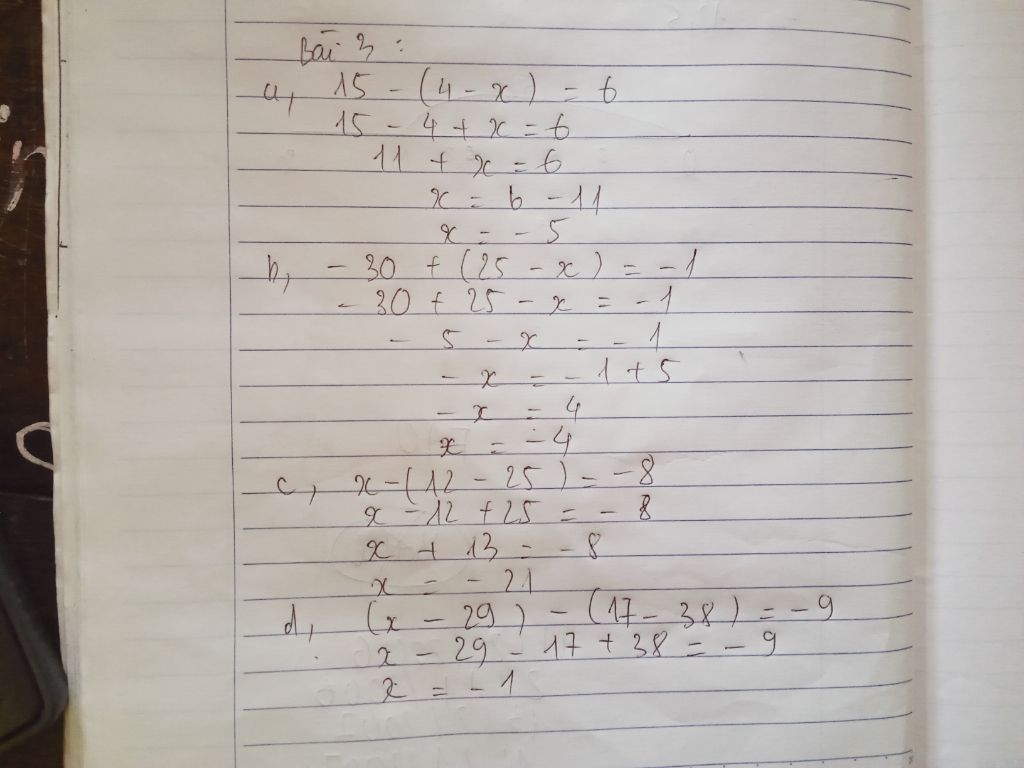 Bài 3 :
a, 15 - (4 - x) = 6
15 - 4 + x = 6
11 + x = 6
x = 6 - 11
x = - 5
b, - 30 + (25 - x) = -1
- 30 + 25 - x = -1
- 5 - x = - 1
- x = - 1 + 5
- x = 4
x = -4
c, x - (12 - 25) = -8
x - 12 + 25 = - 8
x + 13 = -8
x = - 21
d, (x - 29) - (17 - 38) = -9
x - 29 - 17 + 38 = - 9
x = - 1